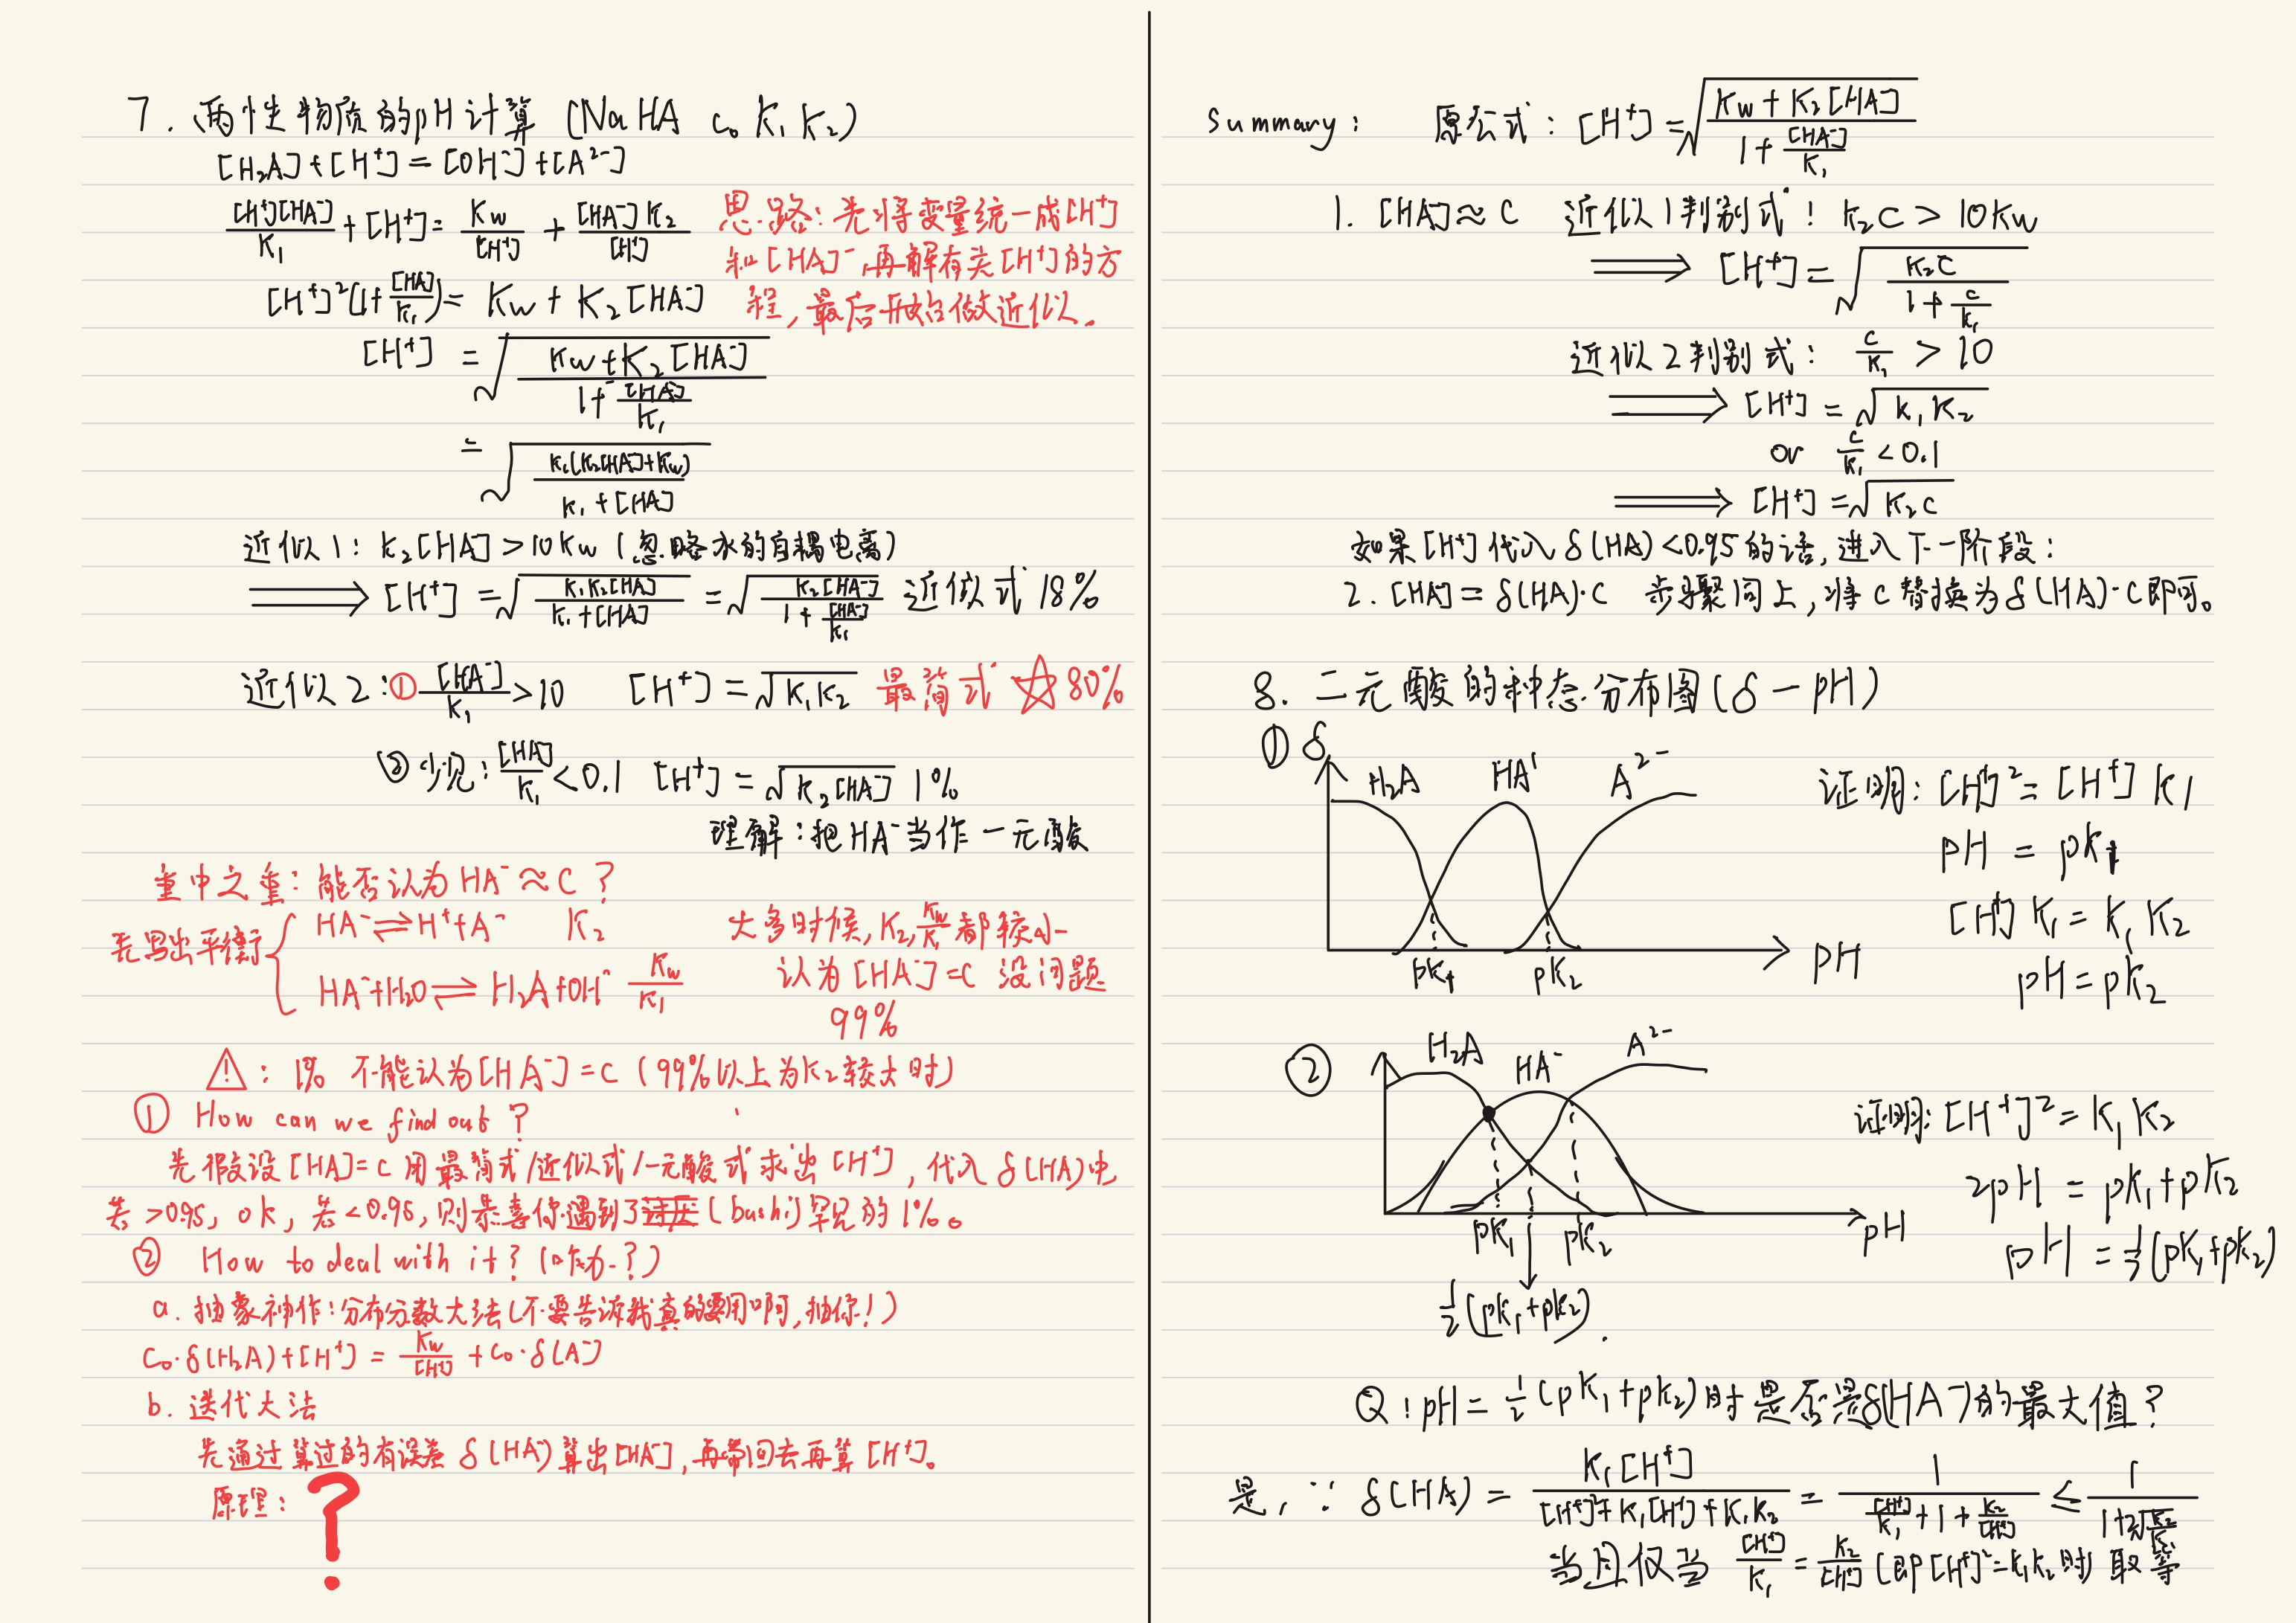 7. 两性物质的pH计算 (NaHA c₀ K₁ K₂)
[H₂A]+[H⁺]=[OH⁻]+[A²⁻]
[H⁺][HA⁻]/K₁ + [H⁺] = Kw/[H⁺] + [HA⁻]K₂/[H⁺]
思路：先将变量统一成[H⁺]
和[HA]⁻,再解有关[H⁺]的方
程,最后开始做近似.
[H⁺]²(1+[HA]/K₁) = Kw + K₂[HA]
[H⁺] = √((Kw+K₂[HA⁻])/(1+[HA⁻]/K₁))
= √(K₁(K₂[HA⁻]+Kw)/(K₁+[HA]))
近似1: K₂[HA]>10Kw (忽略水的自耦电离)
⟹ [H⁺] = √(K₁K₂[HA]/(K₁+[HA])) = √(K₂[HA⁻]/(1+[HA⁻]/K₁)) 近似式 18%
近似2:① [HA⁻]/K₁>10 [H⁺]=√K₁K₂ 最简式 ☆80%
② 少见: [HA]/K₁<0.1 [H⁺]=√K₂[HA⁻] 1%
理解:把HA⁻当作一元酸
重中之重: 能否认为HA⁻≈C ?
先写出平衡
HA⁻⇌H⁺+A⁻ K₂
HA⁻+H₂O⇌H₂A+OH⁻ Kw/K₁
大多时候,K₂,Kw/K₁都较小
认为[HA⁻]=C 没问题
99%
⚠: 1% 不能认为[HA⁻]=c (99%以上为K₂较大时)
① How can we find out ?
先假设[HA]=c 用最简式/近似式/一元酸式求出[H⁺], 代入δ(HA)中
若>0.95, ok, 若<0.95, 则恭喜你遇到了(bushi)罕见的1%。
② How to deal with it? (咋办?)
a. 抽象神作:分布分数大法(不要告诉我真的要用啊,抽你!)
C₀·δ(H₂A)+[H⁺] = Kw/[H⁺] + C₀·δ(A⁻)
b. 迭代大法
先通过算过的有误差δ(HA⁻)算出[HA⁻],再带回去再算[H⁺]。
原理: ?
Summary: 原公式: [H⁺]=√((Kw+K₂[HA])/(1+[HA⁻]/K₁))
1. [HA]≈C 近似1判别式! K₂C > 10Kw
⟹ [H⁺]=√(K₂C/(1+c/K₁))
近似2判别式: c/K₁ > 10
⟹ [H⁺] = √K₁K₂
or c/K₁ < 0.1
⟹ [H⁺]=√K₂c
如果[H⁺]代入δ(HA)<0.95的话,进入下一阶段:
2. [HA⁻] = δ(HA)·C 步骤同上,将c替换为δ(HA)·C即可。
8. 二元酸的种态分布图(δ-pH)
① δ
H₂A HA⁻ A²⁻
pK₁ pK₂ pH
证明: [H⁺]²=[H⁺]K₁
pH = pK₁
[H⁺]K₁=K₁K₂
pH=pK₂
②
H₂A HA⁻ A²⁻
pK₁ pK₂ pH
½(pK₁+pK₂).
证明: [H⁺]²=K₁K₂
2pH = pK₁+pK₂
pH = ½(pK₁+pK₂)
Q: pH=½(pK₁+pK₂)时是否是δ(HA⁻)的最大值?
是, ∵ δ(HA) = K₁[H⁺]/([H⁺]²+K₁[H⁺]+K₁K₂) = 1/([H⁺]/K₁+1+K₂/[H⁺]) ≤ 1/(1+2√(K₂/K₁))
当且仅当 [H⁺]/K₁ = K₂/[H⁺] (即[H⁺]²=K₁K₂时) 取等